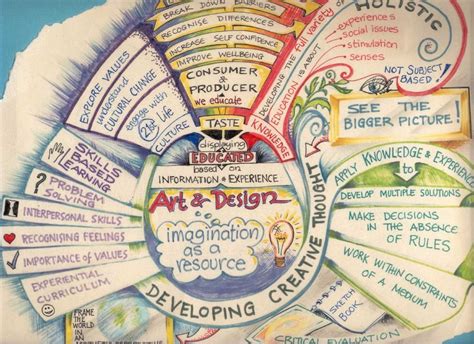 BREAK DOWN BARRIERS
RECOGNISE DIFFERENCES
INCREASE SELF CONFIDENCE
IMPROVE WELLBEING
CONSUMER
& PRODUCER
we educate
TASTE
displaying
EDUCATED
based on
INFORMATION & EXPERIENCE
Art & Design
imagination
as a
resource
DEVELOPING CREATIVE THOUGHT
EXPLORE VALUES
understand
CULTURAL CHANGE
engage with
Life
CULTURE
SKILLS
BASED
LEARNING
? PROBLEM
SOLVING
INTERPERSONAL SKILLS
RECOGNISING FEELINGS
IMPORTANCE OF VALUES
EXPERIENTIAL
CURRICULUM
FRAME
THE WORLD
IN AN
DEVELOPING THE Full variety of
KNOWLEDGE
EDUCATION IS ABOUT
HOLISTIC
experiences
social issues
stimulation
senses
NOT SUBJECT
BASED!
SEE THE
BIGGER PICTURE!
APPLY KNOWLEDGE & EXPERIENCE
to
DEVELOP MULTIPLE SOLUTIONS
MAKE DECISIONS
IN THE ABSENCE
OF RULES
WORK WITHIN CONSTRAINTS
OF A MEDIUM
SKETCH
BOOK
CRITICAL EVALUATION